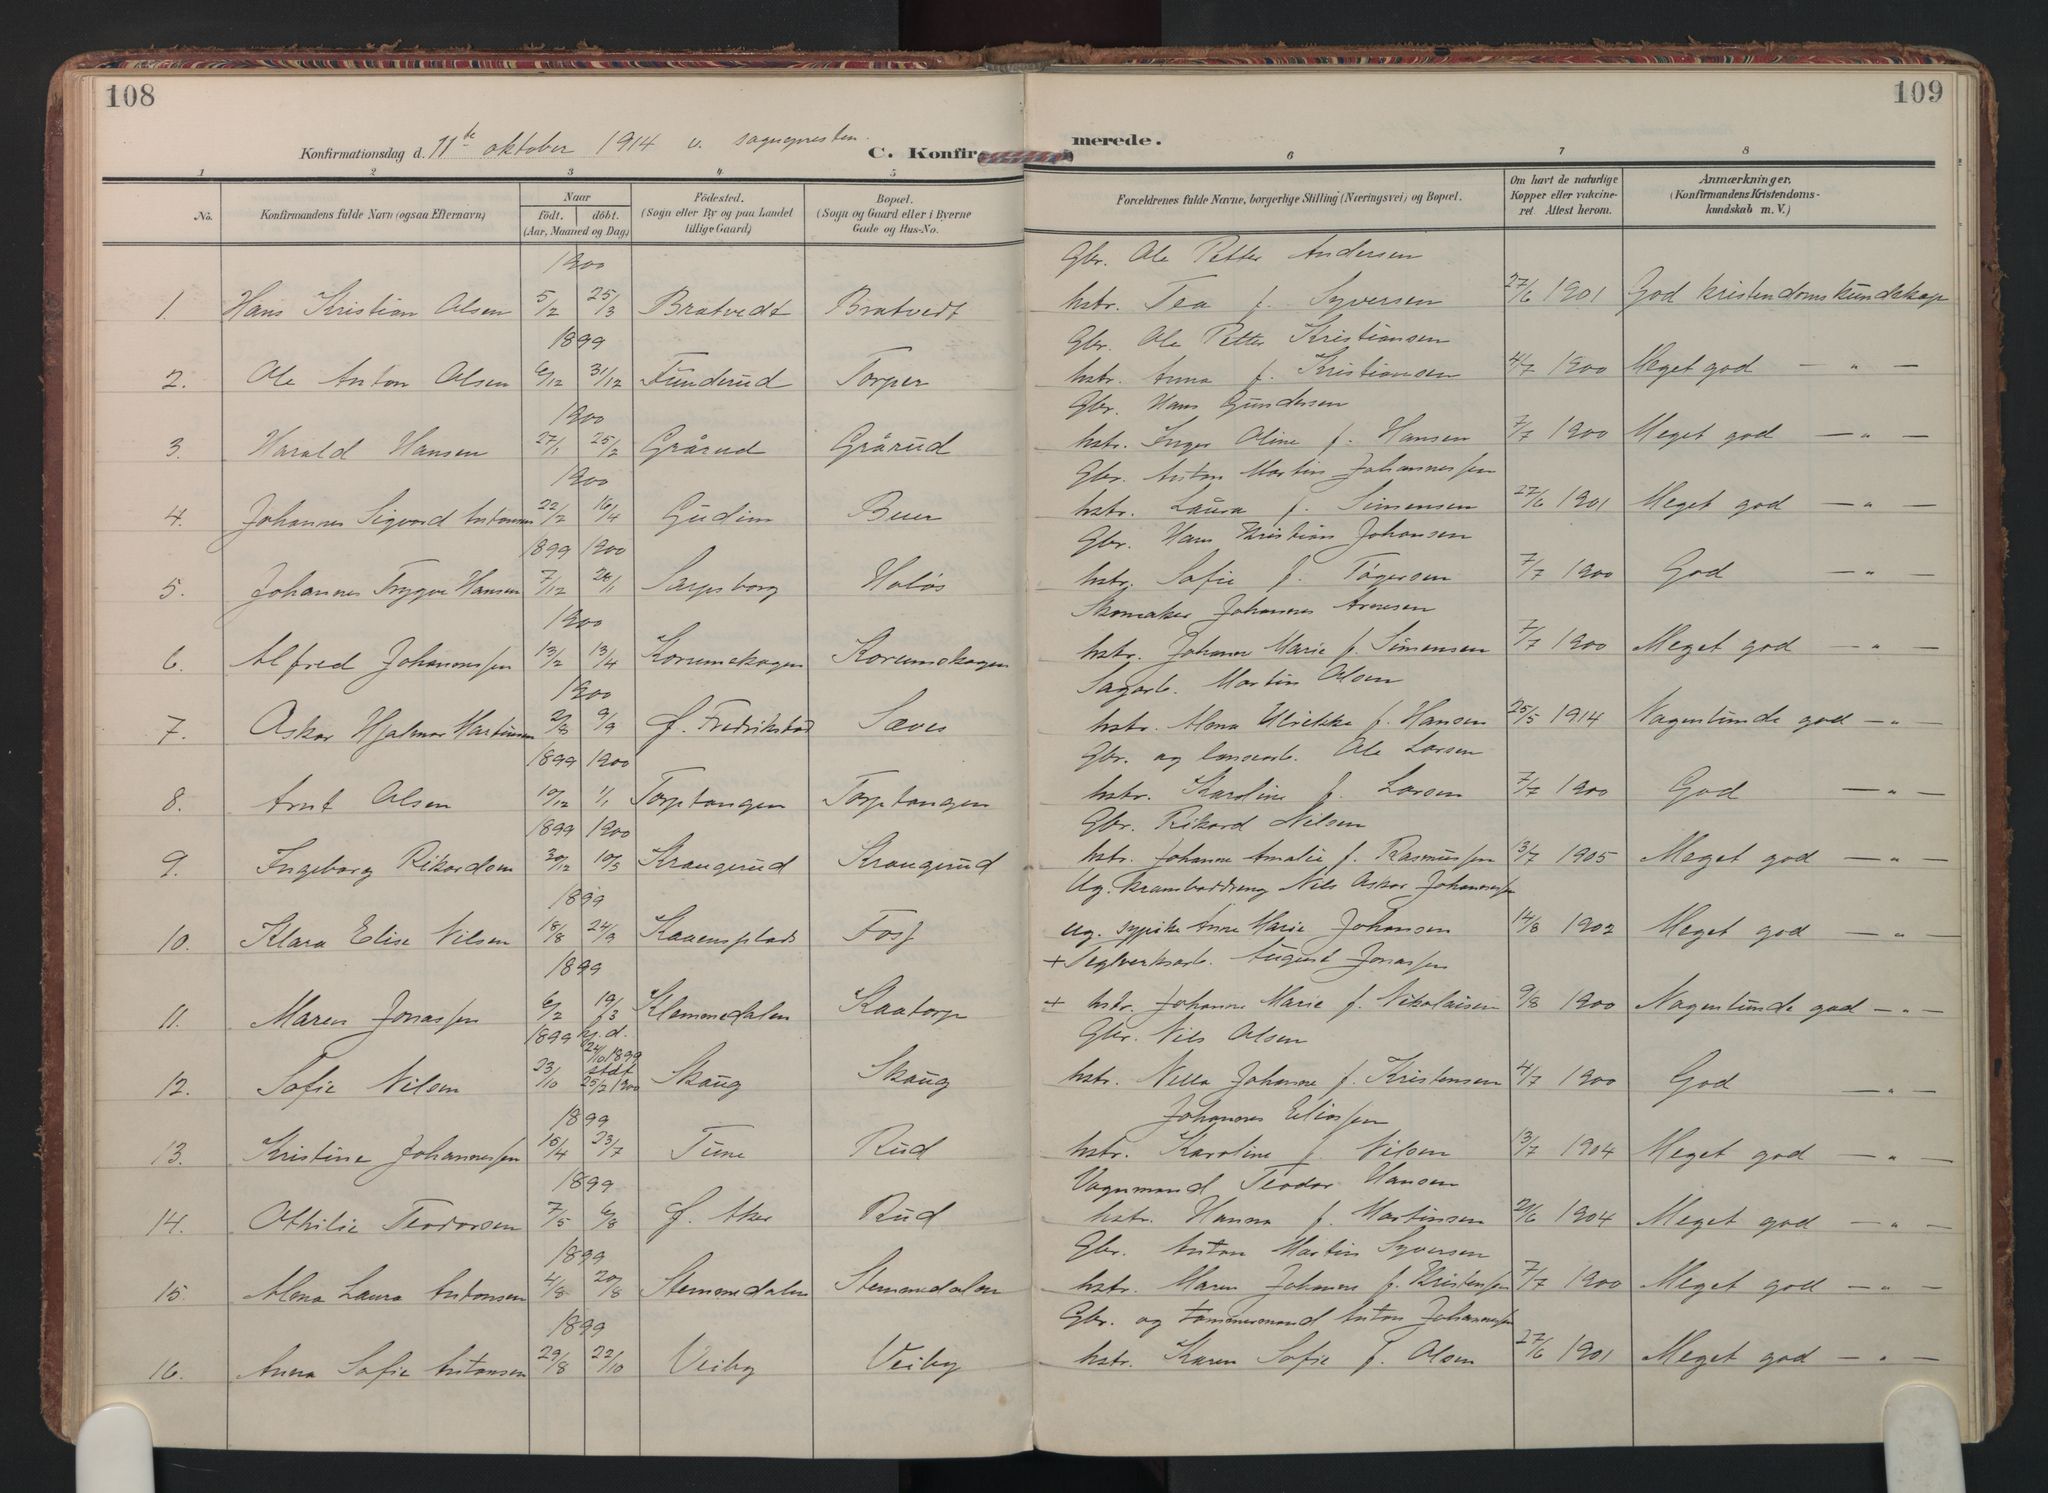 108
109
Konfirmationsdag d. 11te oktober 1914 v. sognepresten.
C. Konfirmerede.
1 2 3 4 5 6 7 8
No. Konfirmandens fulde Navn (ogsaa Efternavn) Naar födt. döbt. (Aar, Maaned og Dag) Födested. (Sogn eller By og paa Landet tillige Gaard) Bopæl. (Sogn og Gaard eller i Byerne Gade og Hus-No. Forældrenes fulde Navne, borgerlige Stilling (Næringsvei) og Bopæl. Om havt de naturlige Kopper eller vakcineret. Attest herom. Anmærkninger. (Konfirmandens Kristendomskundskab m. V.)
1900 Gbr. Ole Petter Andersen
1. Hans Kristian Olsen 5/2 25/3 Bratvedt Bratvedt hstr. Tea f. Syversen 27/6 1901 God kristendomskundskap
1899 Gbr. Ole Petter Kristiansen
2. Ole Anton Olsen 6/12 31/12 Funderud Torper hstr. Anna f. Kristiansen 4/7 1900 Meget god — „ —
1900 Gbr. Hans Gundersen
3. Harald Hansen 27/1 25/2 Grårud Grårud hstr. Inger Oline f. Hansen 7/7 1900 Meget god — „ —
1900 Gbr. Anton Martin Johannessen
4. Johannes Sigvard Antonsen 22/2 16/4 Gudim Buer hstr. Laura f. Simensen 27/6 1901 Meget god — „ —
1899 1900 Gbr. Hans Kristian Johansen
5. Johannes Trygve Hansen 7/12 Sarpsborg Holøs hstr. Sofie f. Tøgersen 7/7 1900 God — „ —
1900 Skomaker Johannes Arnesen
6. Alfred Johannessen 13/2 13/4 Korumskogen Korumskogen hstr. Johanne Marie f. Simensen 7/7 1900 Meget god — „ —
1900 Sagarb. Martin Olsen
7. Oskar Hjalmar Martinsen 2/8 9/9 f. Fredrikstad Sæves hstr. Alma Ulrikke f. Hansen 25/5 1914 Nogenlunde god — „ —
1899 1900 Gbr. og lensearb. Ole Larsen
8. Arnt Olsen 10/12 1/1 Torptangen Torptangen hstr. Karoline f. Larsen 7/7 1900 God — „ —
1899 1900 Gbr. Rikard Nilsen
9. Ingeborg Rikardsen 30/12 10/3 Krangerud Krangerud hstr. Johanne Amalie f. Rasmussen 13/7 1905 Meget god — „ —
1899 Ug. krambodsdreng Nils Oskar Johannessen
10. Klara Elise Nilsen 18/8 24/9 Foss ug. sypike Anne Marie Johansen 14/8 1902 Meget god — „ —
1899 + Teglverksarb. August Jonassen
11. Maren Jonassen 6/2 19/3 Klemmedalen Kaatorp + hstr. Johanne Marie f. Nikolaisen 9/8 1900 Nogenlunde god — „ —
1899 hj. d. 24/10 1899 Gbr. Nils Olsen
12. Sofie Nilsen 23/10 stdf. 25/2 1900 Skaug Skaug hstr. Nella Johanne f. Kristensen 4/7 1900 God — „ —
1899 Johannes Eliassen
13. Kristine Johannessen 15/4 23/7 Tune Rud hstr. Karoline f. Nilsen 13/7 1904 Meget god — „ —
1899 Vognmand Teodor Hansen
14. Othilie Teodorsen 7/5 6/8 f. Aker Rud hstr. Hanna f. Martinsen 1904 Meget god — „ —
1899 Gbr. Anton Martin Syversen
15. Alma Laura Antonsen 4/8 20/8 Stemmedalen Stemmedalen hstr. Maren Johanne f. Kristensen 7/7 1900 Meget god — „ —
1899 Gbr. og tømmermand Anton Johannessen
16. Anna Sofie Antonsen 29/8 22/10 Veiby Veiby hstr. Karen Sofie f. Olsen 27/6 1901 Meget god — „ —